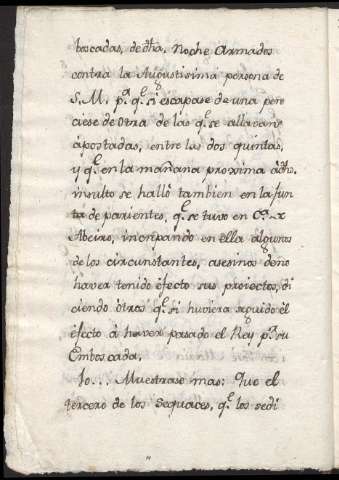 boscadas, de dħa. Noche Armados
contra la Augustisima persona de
S. M. p.ª q.e si escapase de una pere
ciese de otra de las q.e se allavan
apostadas, entre las dos quintas,
y q.e en la mañana proxima à dho.
insulto se hallò tambien en la jun
ta de parientes, q.e se tuvo en
Abeiro, increpando en ella algunos
de los circunstantes, asesinos de no
haver tenido efecto sus proiectos, di
ciendo òtros q.e si huviera seguido èl
èfecto à haver pasado el Rey p.r su
Emboscada.
10... Muestrase mas: Que el
tercero de los Sequaces, q.e los redi